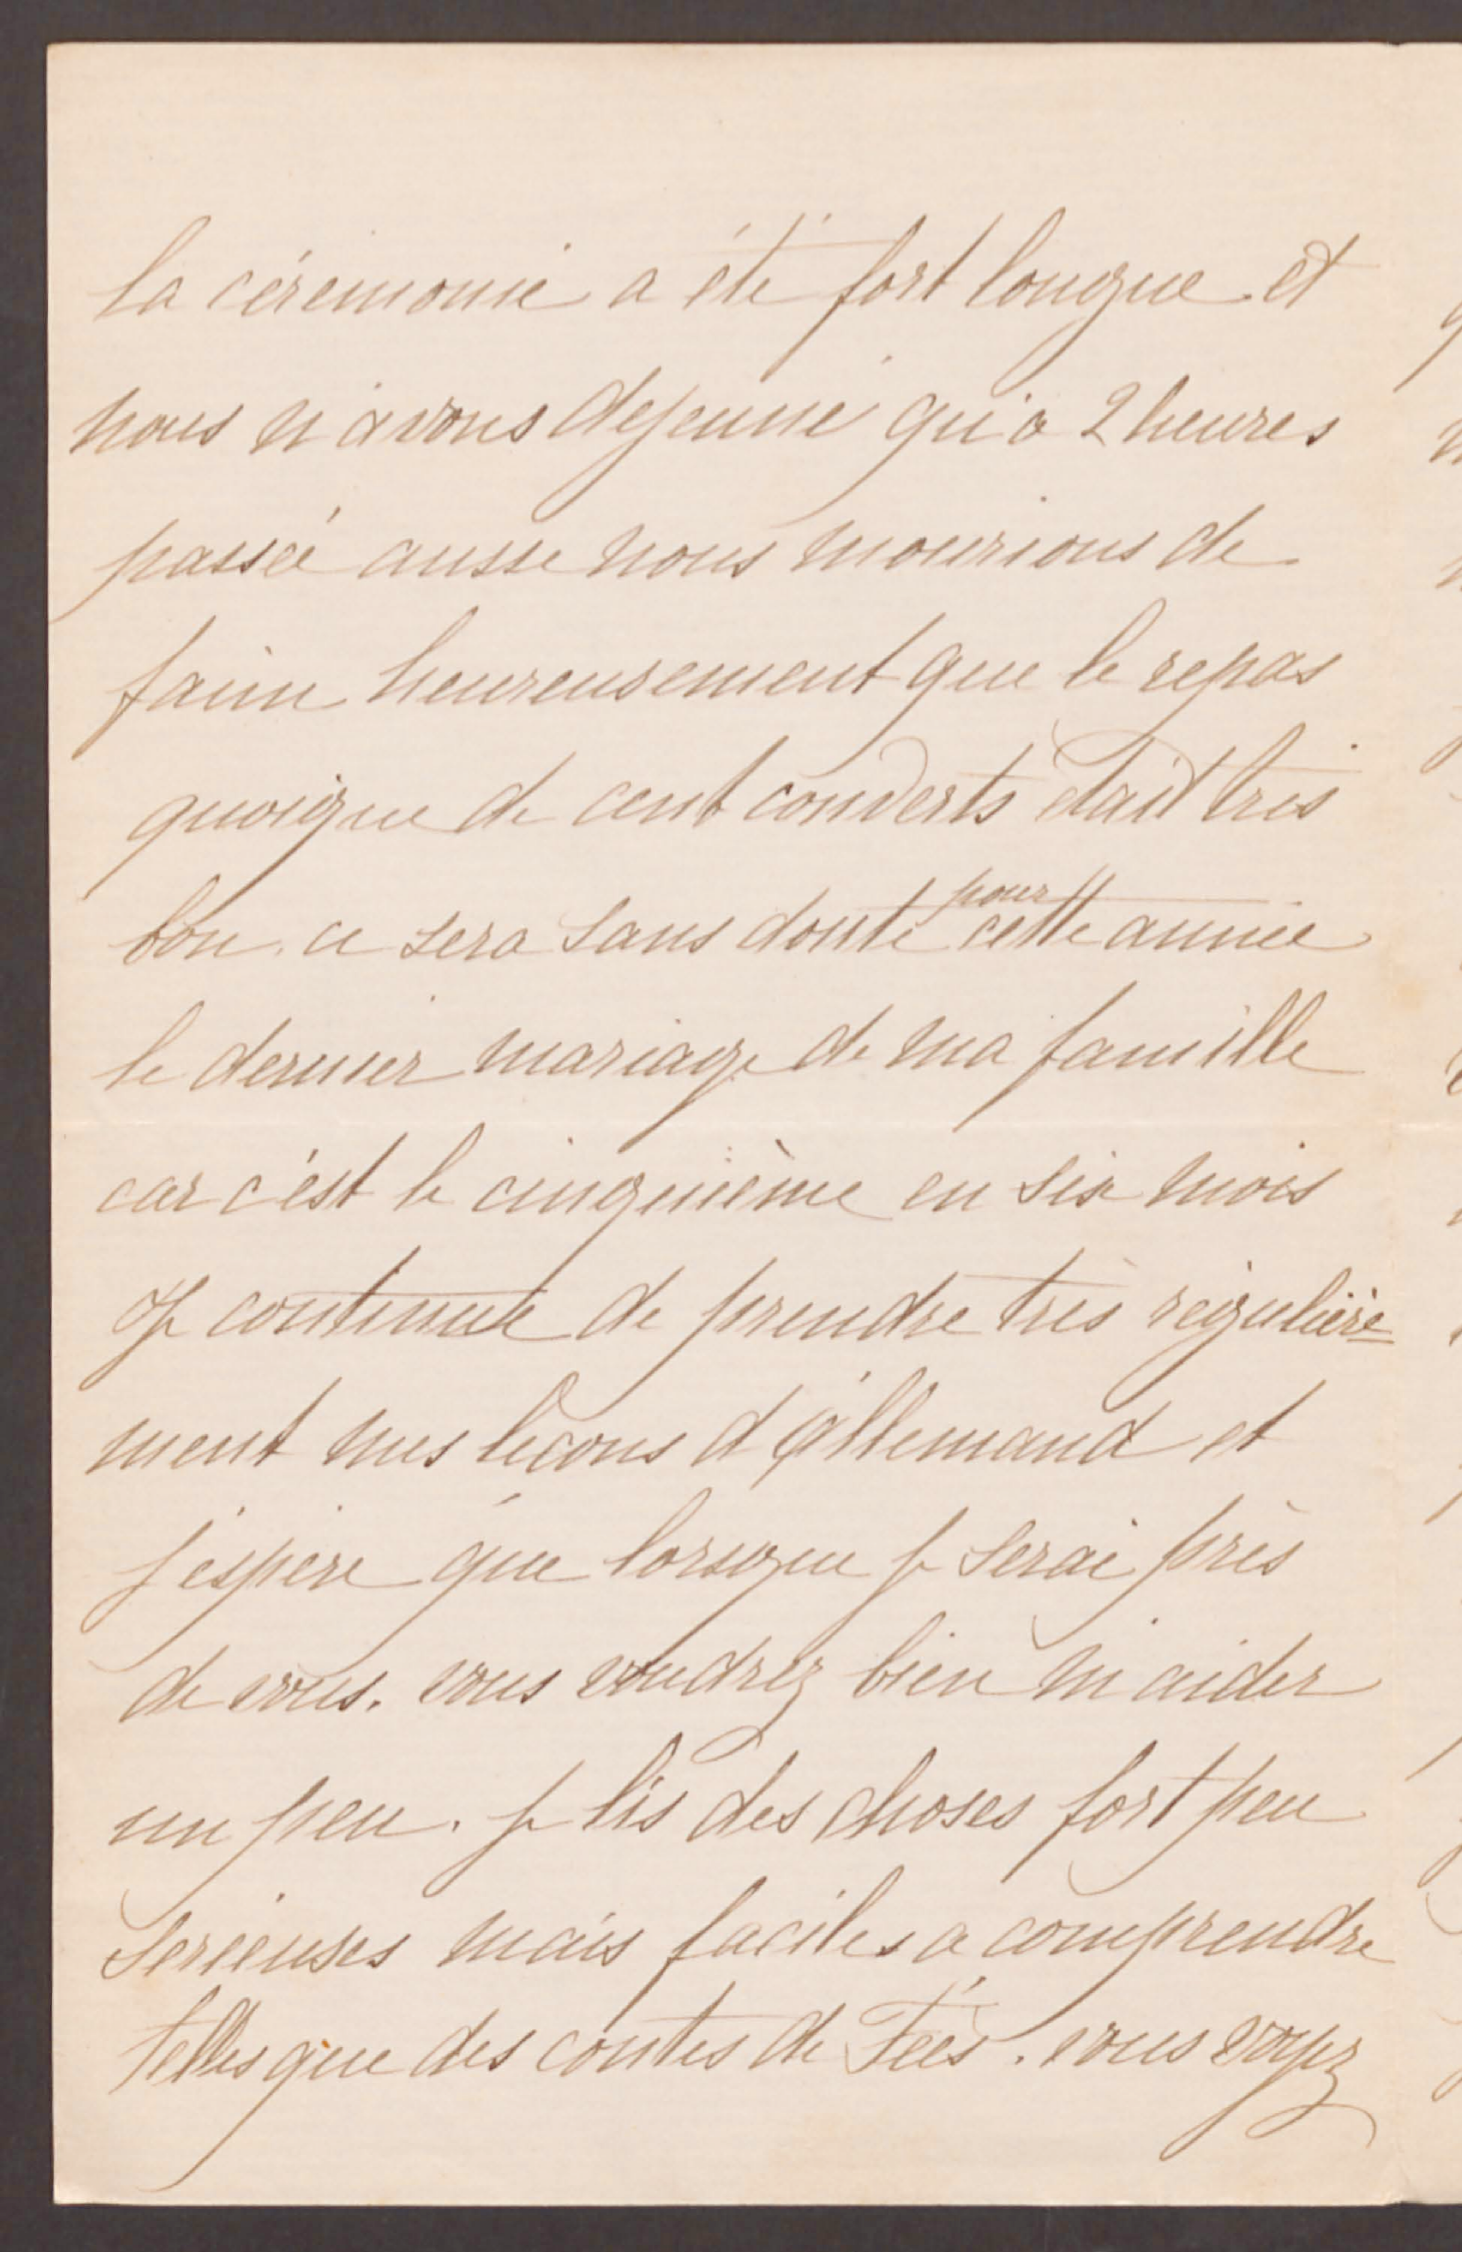 la cérémonie a été fort longue et
nous n'avons dejeuné qu'a 2 heures
passé ausse nous mourions de
faim heureusement que le repas
quoique de cent couverts était très
bon. ce sera sans doute pour cette année
le dernier mariage de ma famille
car c'est le cinquième en six mois
je continue de prendre très régulière=
ment mes leçons d'allemand et
j'espère que lorsque je serai près
de vous. vous voudrez bien m'aider
un peu. je lis des choses fort peu
serieuses mais faciles a comprendre
telles que des contes de Fées. vous voyez